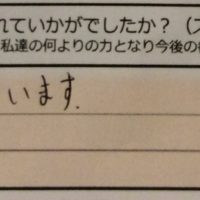 れていかがでしたか？（
私達の何よりの力となり今後の
います.